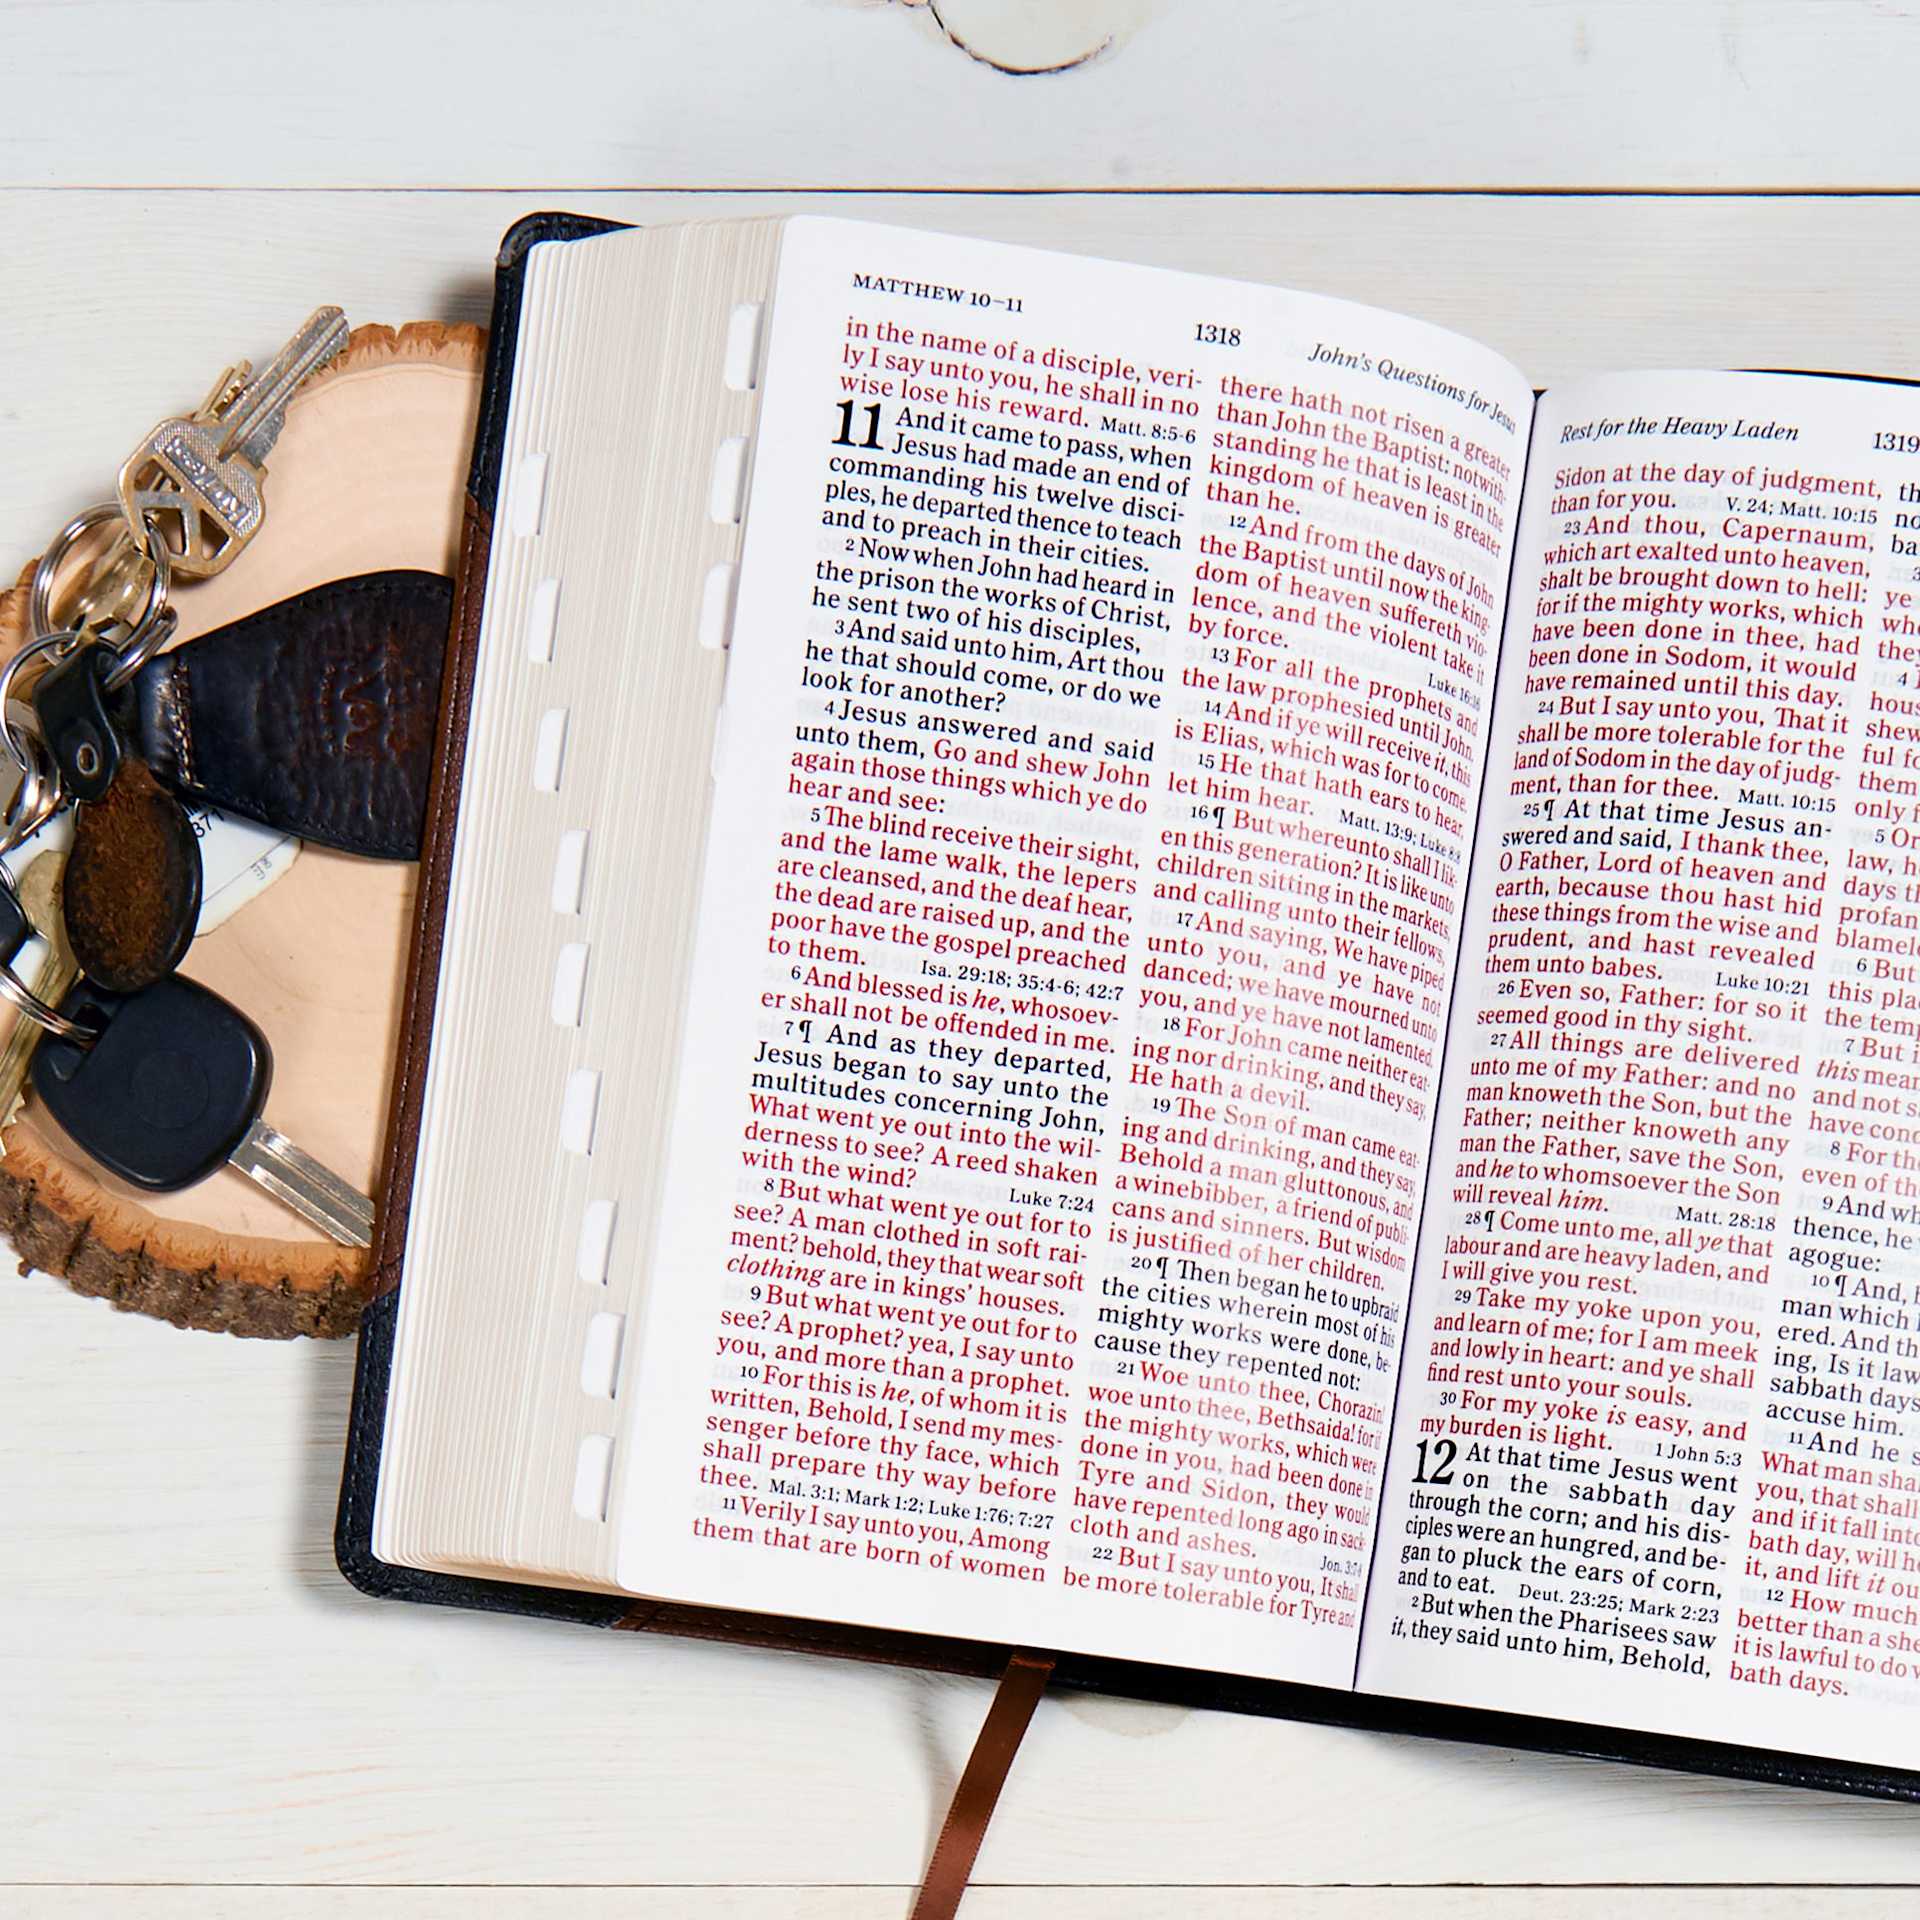 MATTHEW 10–11
1318
John's Questions for Jesus
in the name of a disciple, veri-
ly I say unto you, he shall in no
wise lose his reward. Matt. 8:5-6
11 And it came to pass, when
Jesus had made an end of
commanding his twelve disci-
ples, he departed thence to teach
and to preach in their cities.
2 Now when John had heard in
the prison the works of Christ,
he sent two of his disciples,
3 And said unto him, Art thou
he that should come, or do we
look for another?
4 Jesus answered and said
unto them, Go and shew John
again those things which ye do
hear and see:
5 The blind receive their sight,
and the lame walk, the lepers
are cleansed, and the deaf hear,
the dead are raised up, and the
poor have the gospel preached
to them. Isa. 29:18; 35:4-6; 42:7
6 And blessed is he, whosoev-
er shall not be offended in me.
7 ¶ And as they departed,
Jesus began to say unto the
multitudes concerning John,
What went ye out into the wil-
derness to see? A reed shaken
with the wind? Luke 7:24
8 But what went ye out for to
see? A man clothed in soft rai-
ment? behold, they that wear soft
clothing are in kings' houses.
9 But what went ye out for to
see? A prophet? yea, I say unto
you, and more than a prophet.
10 For this is he, of whom it is
written, Behold, I send my mes-
senger before thy face, which
shall prepare thy way before
thee. Mal. 3:1; Mark 1:2; Luke 1:76; 7:27
11 Verily I say unto you, Among
them that are born of women
there hath not risen a greater
than John the Baptist: notwith-
standing he that is least in the
kingdom of heaven is greater
than he.
12 And from the days of John
the Baptist until now the king-
dom of heaven suffereth vio-
lence, and the violent take it
by force. Luke 16:16
13 For all the prophets and
the law prophesied until John.
14 And if ye will receive it, this
is Elias, which was for to come.
15 He that hath ears to hear,
let him hear. Matt. 13:9; Luke 8:8
16 ¶ But whereunto shall I lik-
en this generation? It is like unto
children sitting in the markets,
and calling unto their fellows,
17 And saying, We have piped
unto you, and ye have not
danced; we have mourned unto
you, and ye have not lamented.
18 For John came neither eat-
ing nor drinking, and they say,
He hath a devil.
19 The Son of man came eat-
ing and drinking, and they say,
Behold a man gluttonous, and
a winebibber, a friend of publi-
cans and sinners. But wisdom
is justified of her children.
20 ¶ Then began he to upbraid
the cities wherein most of his
mighty works were done, be-
cause they repented not:
21 Woe unto thee, Chorazin!
woe unto thee, Bethsaida! for if
the mighty works, which were
done in you, had been done in
Tyre and Sidon, they would
have repented long ago in sack-
cloth and ashes.
22 But I say unto you, It shall
be more tolerable for Tyre and
Rest for the Heavy Laden
1319
Sidon at the day of judgment,
than for you. V. 24; Matt. 10:15
23 And thou, Capernaum,
which art exalted unto heaven,
shalt be brought down to hell:
for if the mighty works, which
have been done in thee, had
been done in Sodom, it would
have remained until this day.
24 But I say unto you, That it
shall be more tolerable for the
land of Sodom in the day of judg-
ment, than for thee. Matt. 10:15
25 ¶ At that time Jesus an-
swered and said, I thank thee,
O Father, Lord of heaven and
earth, because thou hast hid
these things from the wise and
prudent, and hast revealed
them unto babes. Luke 10:21
26 Even so, Father: for so it
seemed good in thy sight.
27 All things are delivered
unto me of my Father: and no
man knoweth the Son, but the
Father; neither knoweth any
man the Father, save the Son,
and he to whomsoever the Son
will reveal him. Matt. 28:18
28 ¶ Come unto me, all ye that
labour and are heavy laden, and
I will give you rest.
29 Take my yoke upon you,
and learn of me; for I am meek
and lowly in heart: and ye shall
find rest unto your souls.
30 For my yoke is easy, and
my burden is light. 1 John 5:3
12 At that time Jesus went
on the sabbath day
through the corn; and his dis-
ciples were an hungred, and be-
gan to pluck the ears of corn,
and to eat. Deut. 23:25; Mark 2:23
2 But when the Pharisees saw
it, they said unto him, Behold,
th
no
ba
3
ye
who
they
4
hous
shew
ful fo
them
only f
5 Or
law, h
days th
profan
blamele
6 But
this plac
the temp
7 But i
this mean
and not s
have cond
8 For the
even of th
9 And wh
thence, he
agogue:
10 ¶ And, b
man which
ered. And th
ing, Is it law
sabbath days
accuse him.
11 And he s
What man sha
you, that shall
and if it fall into
bath day, will he
it, and lift it ou
12 How much
better than a she
it is lawful to do w
bath days.
371